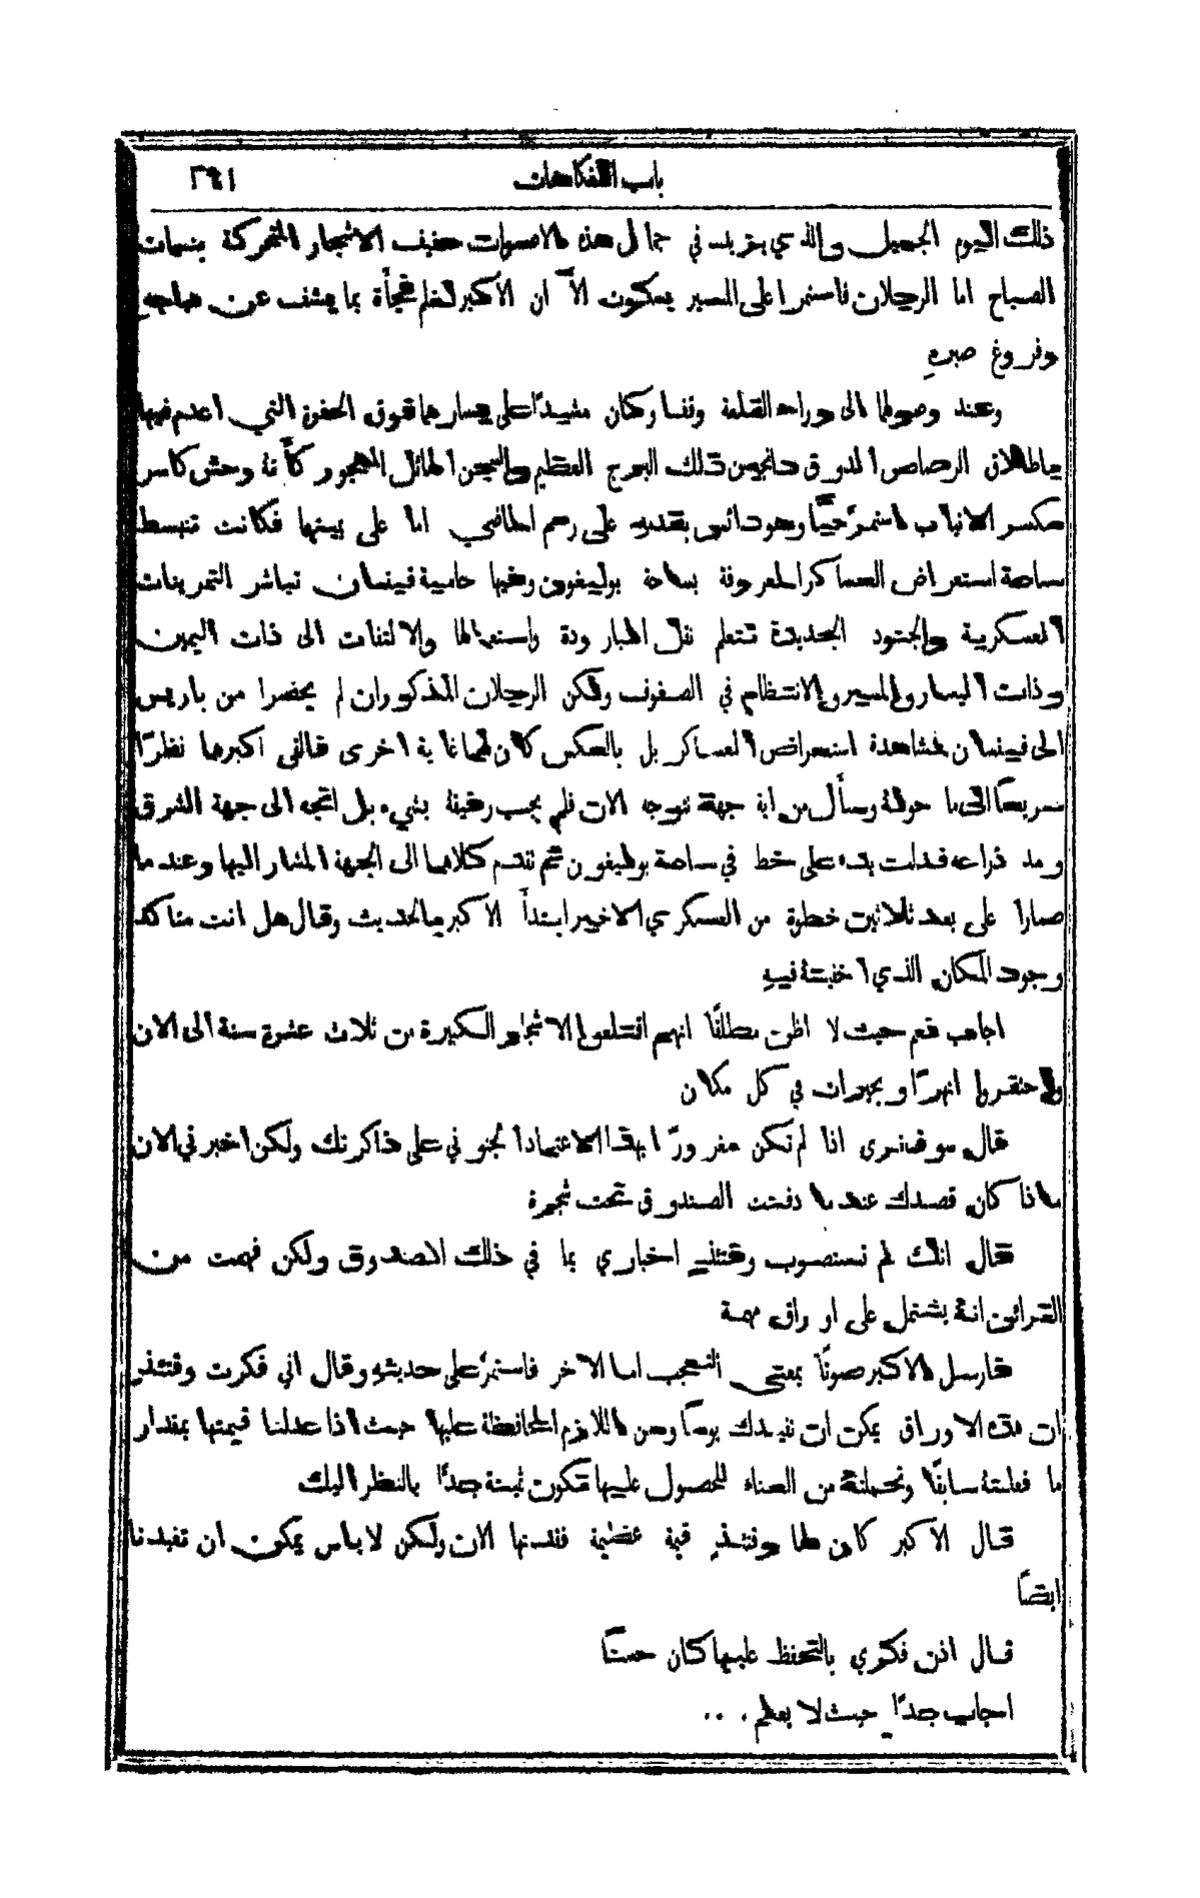 باب الفكاهات ٣٩١
ذلك اليوم الجميل والذي يزيد في جمال هذه الاصوات حفيف الاشجار المتحركة بنسمات
الصباح اما الرجلان فاستمرا على المسير بسكون الاّ ان الاكبر تكلم فجأة بما يشف عن هياجهِ
وفروغ صبرهِ
وعند وصولها الى وراء القلعة وقفا وكان مشيدًا على يسارهما فوق الحفرة التي اعدم فيها
باطلاق الرصاص الدوق دانجيين ذلك البرج العظيم والسجن الهائل المهجور كأنهُ وحش كاسر
مكسر الانياب فاستمرَّ حيًّا وهو دائس بقدميهِ على رسم الماضي اما على يمينها فكانت تنبسط
ساحة استعراض العساكر المعروفة بساحة بوليغون وفيها حامية فينسان تباشر التمرينات
العسكرية والجنود الجديدة تتعلم نقل البارودة واستعمالها والالتفات الى ذات اليمين
وذات اليسار والمسير والانتظام في الصفوف ولكن الرجلان المذكوران لم يحضرا من باريس
الى فينسان لمشاهدة استعراض العساكر بل بالعكس كان لهما غاية اخرى فالقى اكبرها نظرًا
سريعًا الى ما حولهُ وسأل من اية جهة نتوجه الان فلم يجب رفيقهُ بشيء بل اتجه الى جهة الشرق
ومد ذراعه فدلت يده على خط في ساحة بوليغون ثم تقدم كلاهما الى الجهة المشار اليها وعند ما
صارا على بعد ثلاثين خطوة من العسكري الاخير ابتدأ الاكبر بالحديث وقال هل انت متاكد
وجود المكان الذي اخفيتهُ فيهِ
اجاب نعم حيث لا اظن مطلقًا انهم اقتلعوا الاشجار الكبيرة من ثلاث عشرة سنة الى الان
واحتفروا انهرًا وبحيرات في كل مكان
قال سوف نرى انا لم نكن مغرورًا بهذا الاعتماد الجنوني على ذاكرتك ولكن اخبرني الان
ماذا كان قصدك عند ما دفنت الصندوق تحت شجرة
قال انك لم تستصوب وقتئذٍ اخباري بما في ذلك الصندوق ولكن فهمت من
القرائن انهُ يشتمل على اوراق مهمة
فارسل الاكبر صوتًا بمعنى التعجب اما الاخر فاستمرَّ على حديثهِ وقال اني فكرت وقتئذٍ
ان هذه الاوراق يمكن ان تفيدك يومًا ومن اللازم المحافظة عليها حيث اذا عدلنا قيمتها بمقدار
ما فعلتهُ سابقًا وتحملتهُ من العناء للحصول عليها تكون ثمينة جدًا بالنظر اليك
قال الاكبر كان لها وقتئذٍ قيمة عظيمة فقدتها الان ولكن لا باس يمكن ان تفيدنا
ايضًا
قال اذن فكري بالتحفظ عليها كان حسنًا
اجاب جدًا حيث لا يعلم . . .